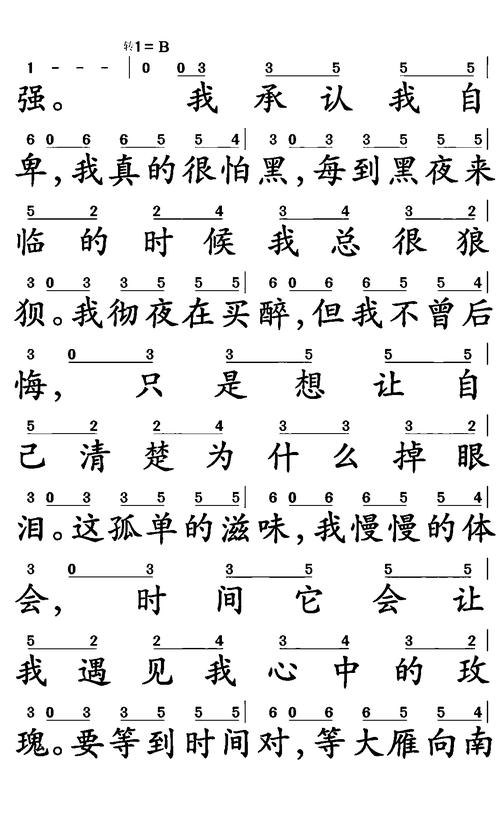 转1=B
1 - - - | 0 0 3 3 5 5 5 |
强。 我 承 认 我 自
6 0 6 6 5 5 4 | 3 0 3 3 5 5 5 |
卑，我真的很怕黑，每到黑夜来
5 2 2 4 3 4 3 2 |
临 的 时 候 我 总 很 狼
3 0 3 3 5 5 5 | 6 0 6 6 5 5 4 |
狈。我彻夜在买醉，但我不曾后
3 0 3 3 5 5 5 |
悔， 只 是 想 让 自
5 2 2 4 3 3 3 2 |
己 清 楚 为 什 么 掉 眼
3 0 3 3 5 5 5 | 6 0 6 6 5 5 4 |
泪。这孤单的滋味，我慢慢的体
3 0 3 3 5 5 5 |
会， 时 间 它 会 让
5 2 2 4 3 4 3 2 |
我 遇 见 我 心 中 的 玫
3 0 3 3 5 5 5 | 6 0 6 6 5 5 4 |
瑰。要等到时间对，等大雁向南